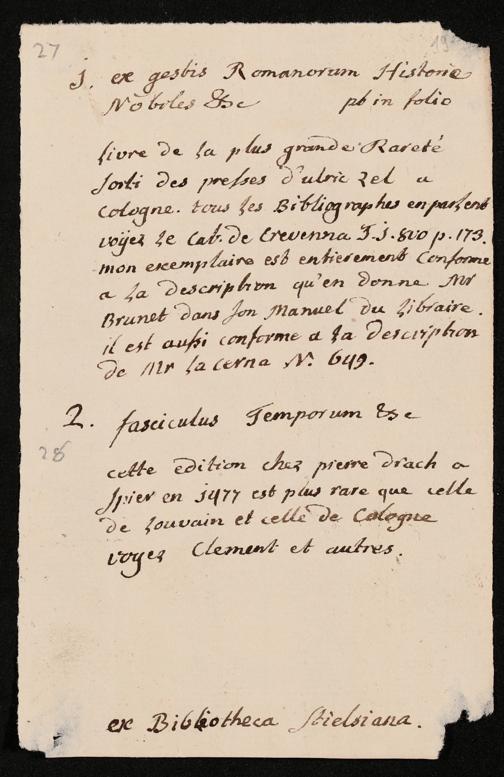 27
19
1. ex gestis Romanorum Historie
Nobiles &c pb in folio
Livre de la plus grande Rareté
sorti des presses d'ulric zel a
Cologne. tous les Bibliographes en parlent
voyez le Cat. de Crevenna T. 1. 8vo p. 173.
mon exemplaire est entierement Conforme
a la description qu'en donne Mr
Brunet dans son Manuel du Libraire.
il est aussi conforme a la description
de Mr lacerna N. 649.
2. fasciculus Temporum &c
28
cette edition chez pierre drach a
Spier en 1477 est plus rare que celle
de Louvain et celle de Cologne
voyez Clement et autres.
ex Bibliotheca Stielsiana.